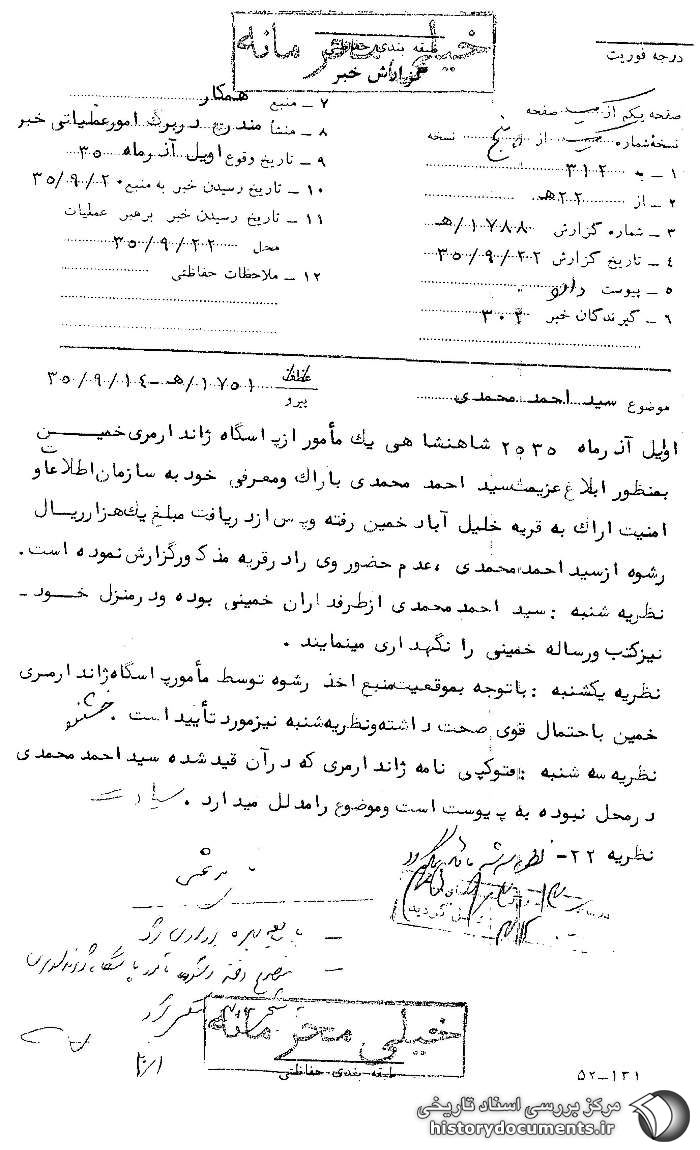 خیلی محرمانه
طبقه بندی حفاظتی
گزارش خبر
درجه فوریت
صفحه یکم از صفحه
نسخه شماره یک از پنج نسخه
۱ – به ۳۱۲
۲ – از ۲۲هـ
۳ – شماره گزارش ۱۷۸۸/هـ
۴ – تاریخ گزارش ۳۵/۹/۲۲
۵ – پیوست دارد
۶ – گیرندگان خبر ۳۰۲
۷ – منبع همکار
۸ – منشأ مندرج دربرگ امورعملیاتی خبر
۹ – تاریخ وقوع اویل آذرماه ۳۵
۱۰ – تاریخ رسیدن خبر به منبع ۳۵/۹/۲۰
۱۱ – تاریخ رسیدن خبر برهبر عملیات
محل ۳۵/۹/۲۲
۱۲ – ملاحظات حفاظتی
موضوع سید احمد محمدی
عطف
پیرو
۱۷۵۱/هـ-۳۵/۹/۱۴
اویل آذرماه ۲۵۳۵ شاهنشاهی یك مأمور ازپاسگاه ژاندارمری خمیــن
بمنظور ابلاغ عزیمت سید احمد محمدی باراك ومعرفی خودبه سازمان اطلاعات و
امنیت اراك به قریه خلیل آباد خمین رفته وپس ازدریافت مبلغ یك هزارریــال
رشوه ازسیداحمدمحمدی ،عدم حضوروی رادرقریه مذکورگزارش نموده است.
نظریه شنبه : سید احمد محمدی ازطرفداران خمینی بوده ودرمنزل خــود -
نیزکتب ورساله خمینی را نگهداری مینمایند .
نظریه یکشنبه : باتوجه بموقعیت منبع اخذ رشوه توسط مأمورپاسگاه ژاندارمری
خمین باحتمال قوی صحت داشته ونظریه شنبه نیزمورد تأیید است .
نظریه سه شنبه : فتوکپی نامه ژاندارمری که درآن قیدشده سیداحمدمحمدی
درمحل نبوده به پیوست است وموضوع رامدلل میدارد .
نظریه ۲۲-
خیلی محرمانه
طبقه بندی حفاظتی
۵۲-۱۳۱
مرکز بررسی اسناد تاریخی
historydocuments.ir